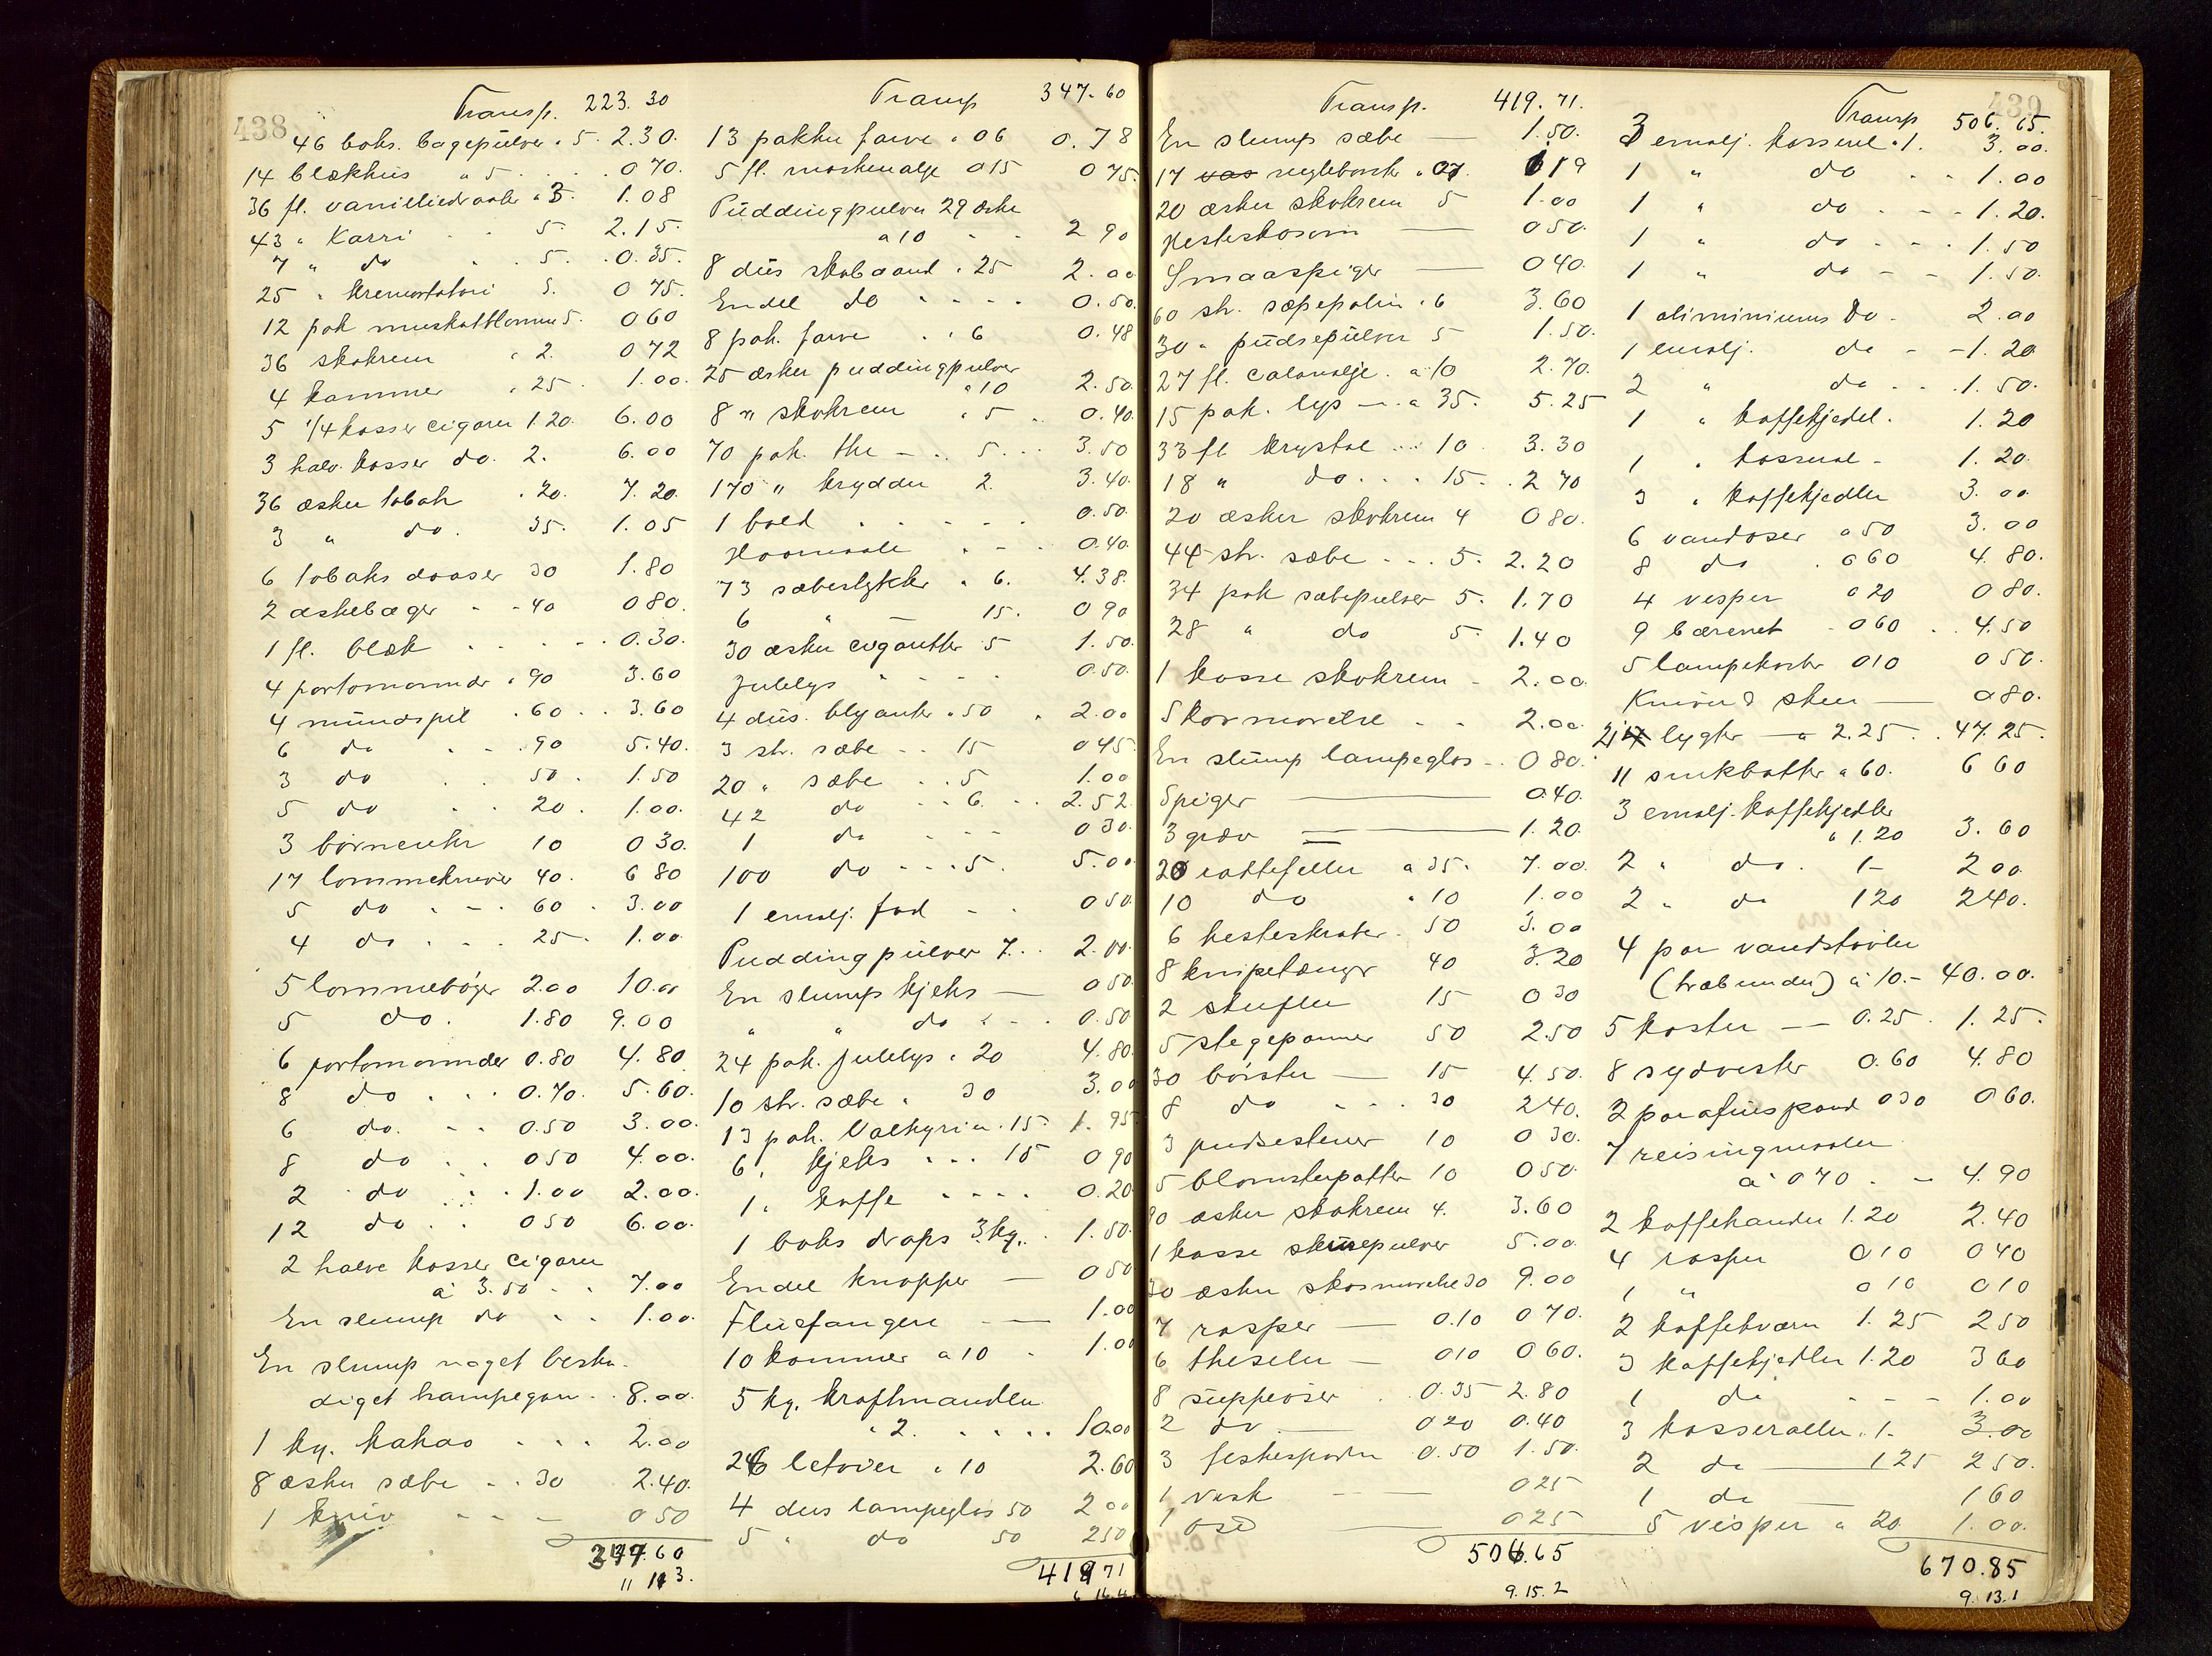 438
Transp. 223.30
46 boks. bagepulver " 5. 2.30.
14 blækhus " 5 . . . 0 70.
36 fl. vanilliedraaber " 3. 1.08
43 " Karri . . 5. 2.15.
7 " do . . 5. 0.35.
25 " kremortatari 5. 0 75.
12 pak muskatblomme 5. 0 60
36 skokrem " 2. 0 72
4 kammer " 25. 1.00.
5 1/4 kasser cigarer 1.20. 6.00
3 halv. kasser do. 2. 6.00
36 æsker tobak " 20. 7.20.
3 " do. 35. 1.05
6 tobaks daaser 30 1.80
2 askebæger - - 40 0 80.
1 fl. blæk . . . . 0.30.
4 portomonnæer " 90 3.60
4 mundspil . 60 . . 3.60
6 do . - . 90 5.40.
3 do . . 50. 1.50
5 do . . 20. 1.00.
3 børneuhr 10 0 30.
17 lommekniver 40. 6 80
5 do . - . 60 . 3.00
4 do . . . 25. 1.00
5 lommebøger 2.00 10.00
5 do. 1.80 9.00
6 portomonnæer 0.80 4.80
8 do . . . 0.70. 5.60.
6 do. . - 0.50 3.00.
8 do . . 0 50 4.00.
2 do . . . 1.00 2.00.
12 do . . 0 50 6.00.
2 halve kasser cigarer
à 3.50 . . 7.00
En slump do . . 1.00.
En slump noget beska-
diget hampegarn . . 8.00.
1 kg. kakao . . . 2.00
8 æsker sæbe . . 30 2.40.
1 kniv - - - 0 50
347.60
11
Transp 347.60
13 pakker farve " 06 0.78
5 fl. maskinolje 015 0 75.
Puddingpulver 29 æske
a 10 - - 2 90
8 dus skobaand " 25 2.00
Endel do . . . . 0.50.
8 pak. farve . " 6 0.48
25 æsker puddingpulver
" 10 2.50.
8 " skokrem " 5 . 0.40.
70 pak. the - . . 5 . . . 3.50
170 " krydder 2. 3.40.
1 bold . . . . . 0.50.
Haarnaale . - . 0.40.
73 sæbestykker " 6. 4.38.
6 " — 15. 0 90
30 æsker cigaretter 5 1.50.
Julelys . . . . 0.50.
4 dus. blyanter " 50 . 2.00
3 str. sæbe . . 15 0 45
20 " sæbe . . 5 1.00
42 do . . 6. . . 2.52
1 do - - - 0 30.
100 do . . . 5. 5.00
1 emalj. fad - . 0 50.
Puddingpulver 7 . . 2.00.
En slump kjeks — 0 50.
" " do . - . 0.50
24 pak. julelys " 20 4.80.
10 str. sæbe . 30 3.00
13 pak. Valkyria . 15. 1.95
6 " kjeks . . . 15 0 90
1 " kaffe . . . . 0.20
1 boks drops 3 kg. . 1.50.
Endel knapper — 0 50
Fluefangere — 1.00
10 kammer a 10 . 1.00
5 kg. kraftmandler
" 2. . . . . 10.00
26 letøver " 10 2.60
4 dus lampeglas 50 2 00
5 " do 50 2 50
419 71
Transp. 419.71.
En slump sæbe — 1.50.
17 neglebørster " 07 1 19
20 æsker skokrem 5 1.00
Hesteskosøm — 0 50.
Smaaspiger — 0 40.
60 str. sæpepolin " 6 3.60
30 " pudsepulver 5 1.50.
27 fl. Calorolje . a 10 2.70.
15 pak. lys — . a 35. 5.25
33 fl. krystal . . . 10 3.30
18 " do . . . 15. . 2 70
20 æsker skokrem 4 0 80.
44 str. sæbe . . . 5. 2.20
34 pak sæbepulver 5. 1.70
28 " do 5. 1.40
1 kasse skokrem - 2.00
Skosmørelse . . 2.00
En slump lampeglas - . 0 80.
Spiger — 0.40.
3 græv — 1.20.
20 rottefeller a 35. 7.00.
10 do " 10 1.00
6 hesteskraber . 50 3.00
8 knipetænger 40 3.20
2 skuffler 15 0 30
5 stegepanner 50 2.50
30 børster — 15 4.50.
8 do . . . 30 2 40.
3 pudsestener 10 0 30.
5 blomsterpotter 10 0 50.
90 æsker skokrem 4. 3.60
1 kasse skurepulver 5.00.
30 æsker skosmørelse 30 9.00
7 rasper — 0.10 0 70.
6 thesiler — 010 0 60.
8 suppeøser . 0.35 2.80
2 do. — 0 20 0.40
3 fiskespader 0.50 1.50.
1 vesk — 0 25
1 øse — 0 25
506.65
9.15.2
439
Transp 506.65.
3 emalj. kasserol " 1. 3.00.
1 " do . . 1.00
1 " do . - - 1.20.
1 " do . - . 1.50
1 " do - - 1.50.
1 aliminiums do. 2.00
1 emalj. do - - 1.20
2 " do - . . 1.50.
1 " kaffekjedel. 1.20
1 " kasserol - 1.20.
3 " kaffekjedler 3.00
6 vandøser a 50 3.00
8 do . a 60 4.80.
4 vesper a 20 0 80.
9 bærenet - 0 60 . . 4.50
5 lampekoster 010 0 50.
Kniver & skeer — 0 80.
21 lygter — a 2.25 . . 47.25.
11 sinkbøtter " 60. 6 60
3 emalj. kaffekjedler
" 1.20 3.60
2 " do. 1- 2 00.
2 " do 1 20 2 40.
4 par vandstøvler
(træbunder) à 10.- 40.00.
5 koster — 0.25 . 1.25.
8 sydvester 0.60 4.80
2 parafinspand 0 30 0 60.
7 reisingmaaler
a 0 70 . - 4.90
2 kaffekander 1.20 2.40
4 rasper 0 10 0 40
1 " 0 10 0 10
2 kaffekværn 1.25 2 50
3 kaffekjedler 1.20 3 60
1 do . - - 1.00
3 kasseroller . 1. 3.00
2 do — 1 25 2 50.
1 do — 1 60
5 visper a 20 1.00.
670.85
9.13.1